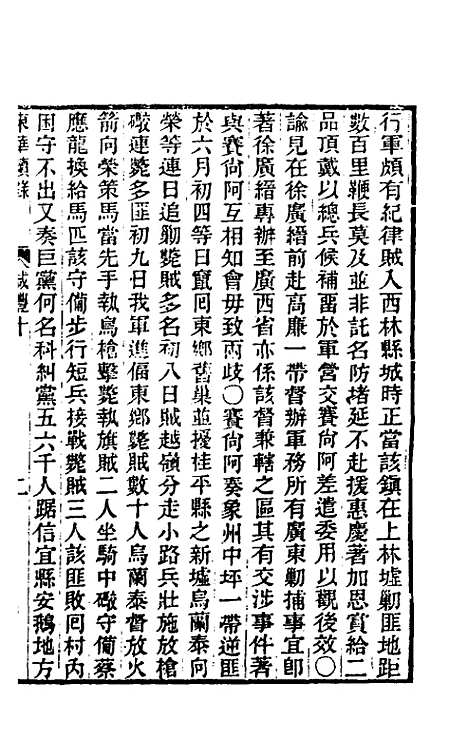 行軍頗有紀律賊入西林縣城時正當該鎮在上林墟勦匪地距
數百里鞭長莫及並非託名防堵延不赴援惠慶著加恩賞給二
品頂戴以總兵候補留於軍營交賽尙阿差遣委用以觀後效〇
諭見在徐廣縉前赴高廉一帶督辦軍務所有廣東勦捕事宜卽
著徐廣縉專辦至廣西省亦係該督兼轄之區其有交涉事件著
與賽尙阿互相知會毋致兩歧〇賽尙阿奏象州中坪一帶逆匪
於六月初四等日竄囘東鄉舊巢並擾桂平縣之新墟烏蘭泰向
榮等連日追勦斃賊多名初八日賊越嶺分走小路兵壯施放槍
礮連斃多匪初九日我軍進偪東鄉斃賊數十人烏蘭泰督放火
箭向榮策馬當先手執鳥槍擊斃執旗賊二人坐騎中礮守備蔡
應龍換給馬匹該守備步行短兵接戰斃賊三人該匪敗囘村內
固守不出又奏巨黨何名科糾黨五六千人踞信宜縣安鵝地方
東華續錄 咸豐十 二